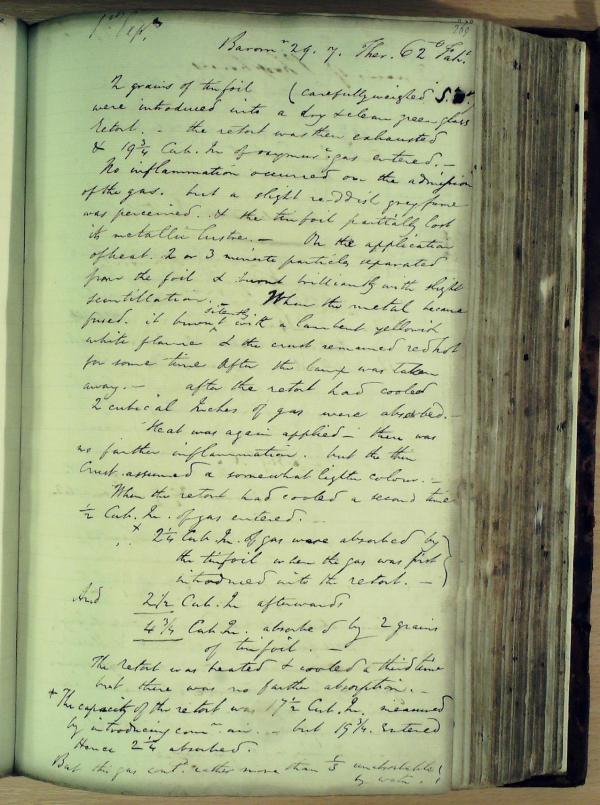 269
1st Septr.
Baromr. 29. 7. Ther. 62° Fahr.
2 grains of tinfoil (carefully weighed
were introduced into a dry & clean green glass
Retort. – the retort was then exhausted
& 19 3/4 Cub. In of oxymurc gas entered. –
No inflammation occurred on the admission
of the gas. but a slight reddish grey fume
was perceived. & the tinfoil partially lost
its metallic lustre. – On the application
of heat. 2 or 3 minute particles separated
from the foil & burnt brilliantly with slight
scintillation. – When the metal became
fused. it burnt silently with a lambent yellowish
white flame & the crust remained red hot
for some time After the lamp was taken
away. – after the retort had cooled
2 cubical Inches of gas were absorbed. –
Heat was again applied – there was
no farther inflammation. but the thin
Crust assumed a somewhat lighter colour. –
When the retort had cooled a second time
1/2 Cub. In. of gas entered.
x 2 1/4 Cub. In. of gas were absorbed by
the tinfoil when the gas was first
introduced into the retort. –
And 2 1/2 Cub. In afterwards
4 3/4 Cub In. absorbed by 2 grains
of tinfoil. –
The retort was heated & cooled a third time
but there was no farther absorption. –
x The capacity of the retort was 17 1/2 Cub. In. measured
by introducing comn. air. – but 19 3/4. entered
Hence 2 1/4 absorbed.
But this gas contd. rather more than 1/5 unabsorbable
by water.